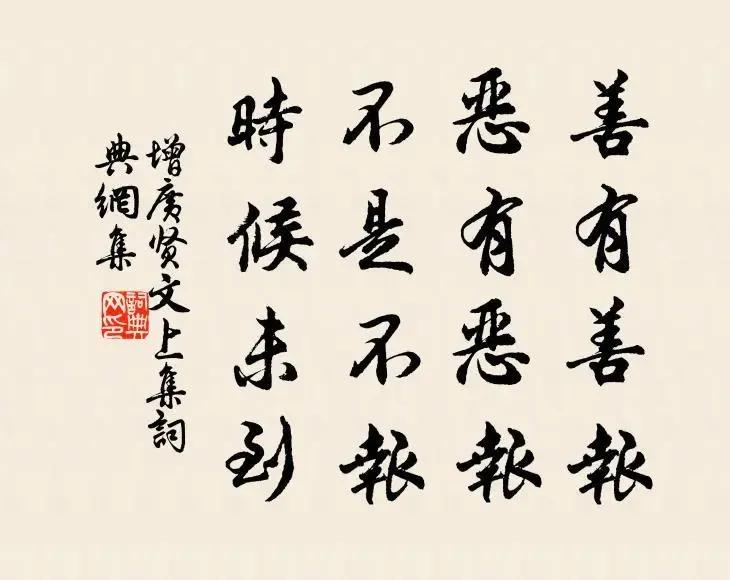 善有善報
恶有恶報
不是不報
時候未到
增廣贤文上集詞
典網集
詞典
网印